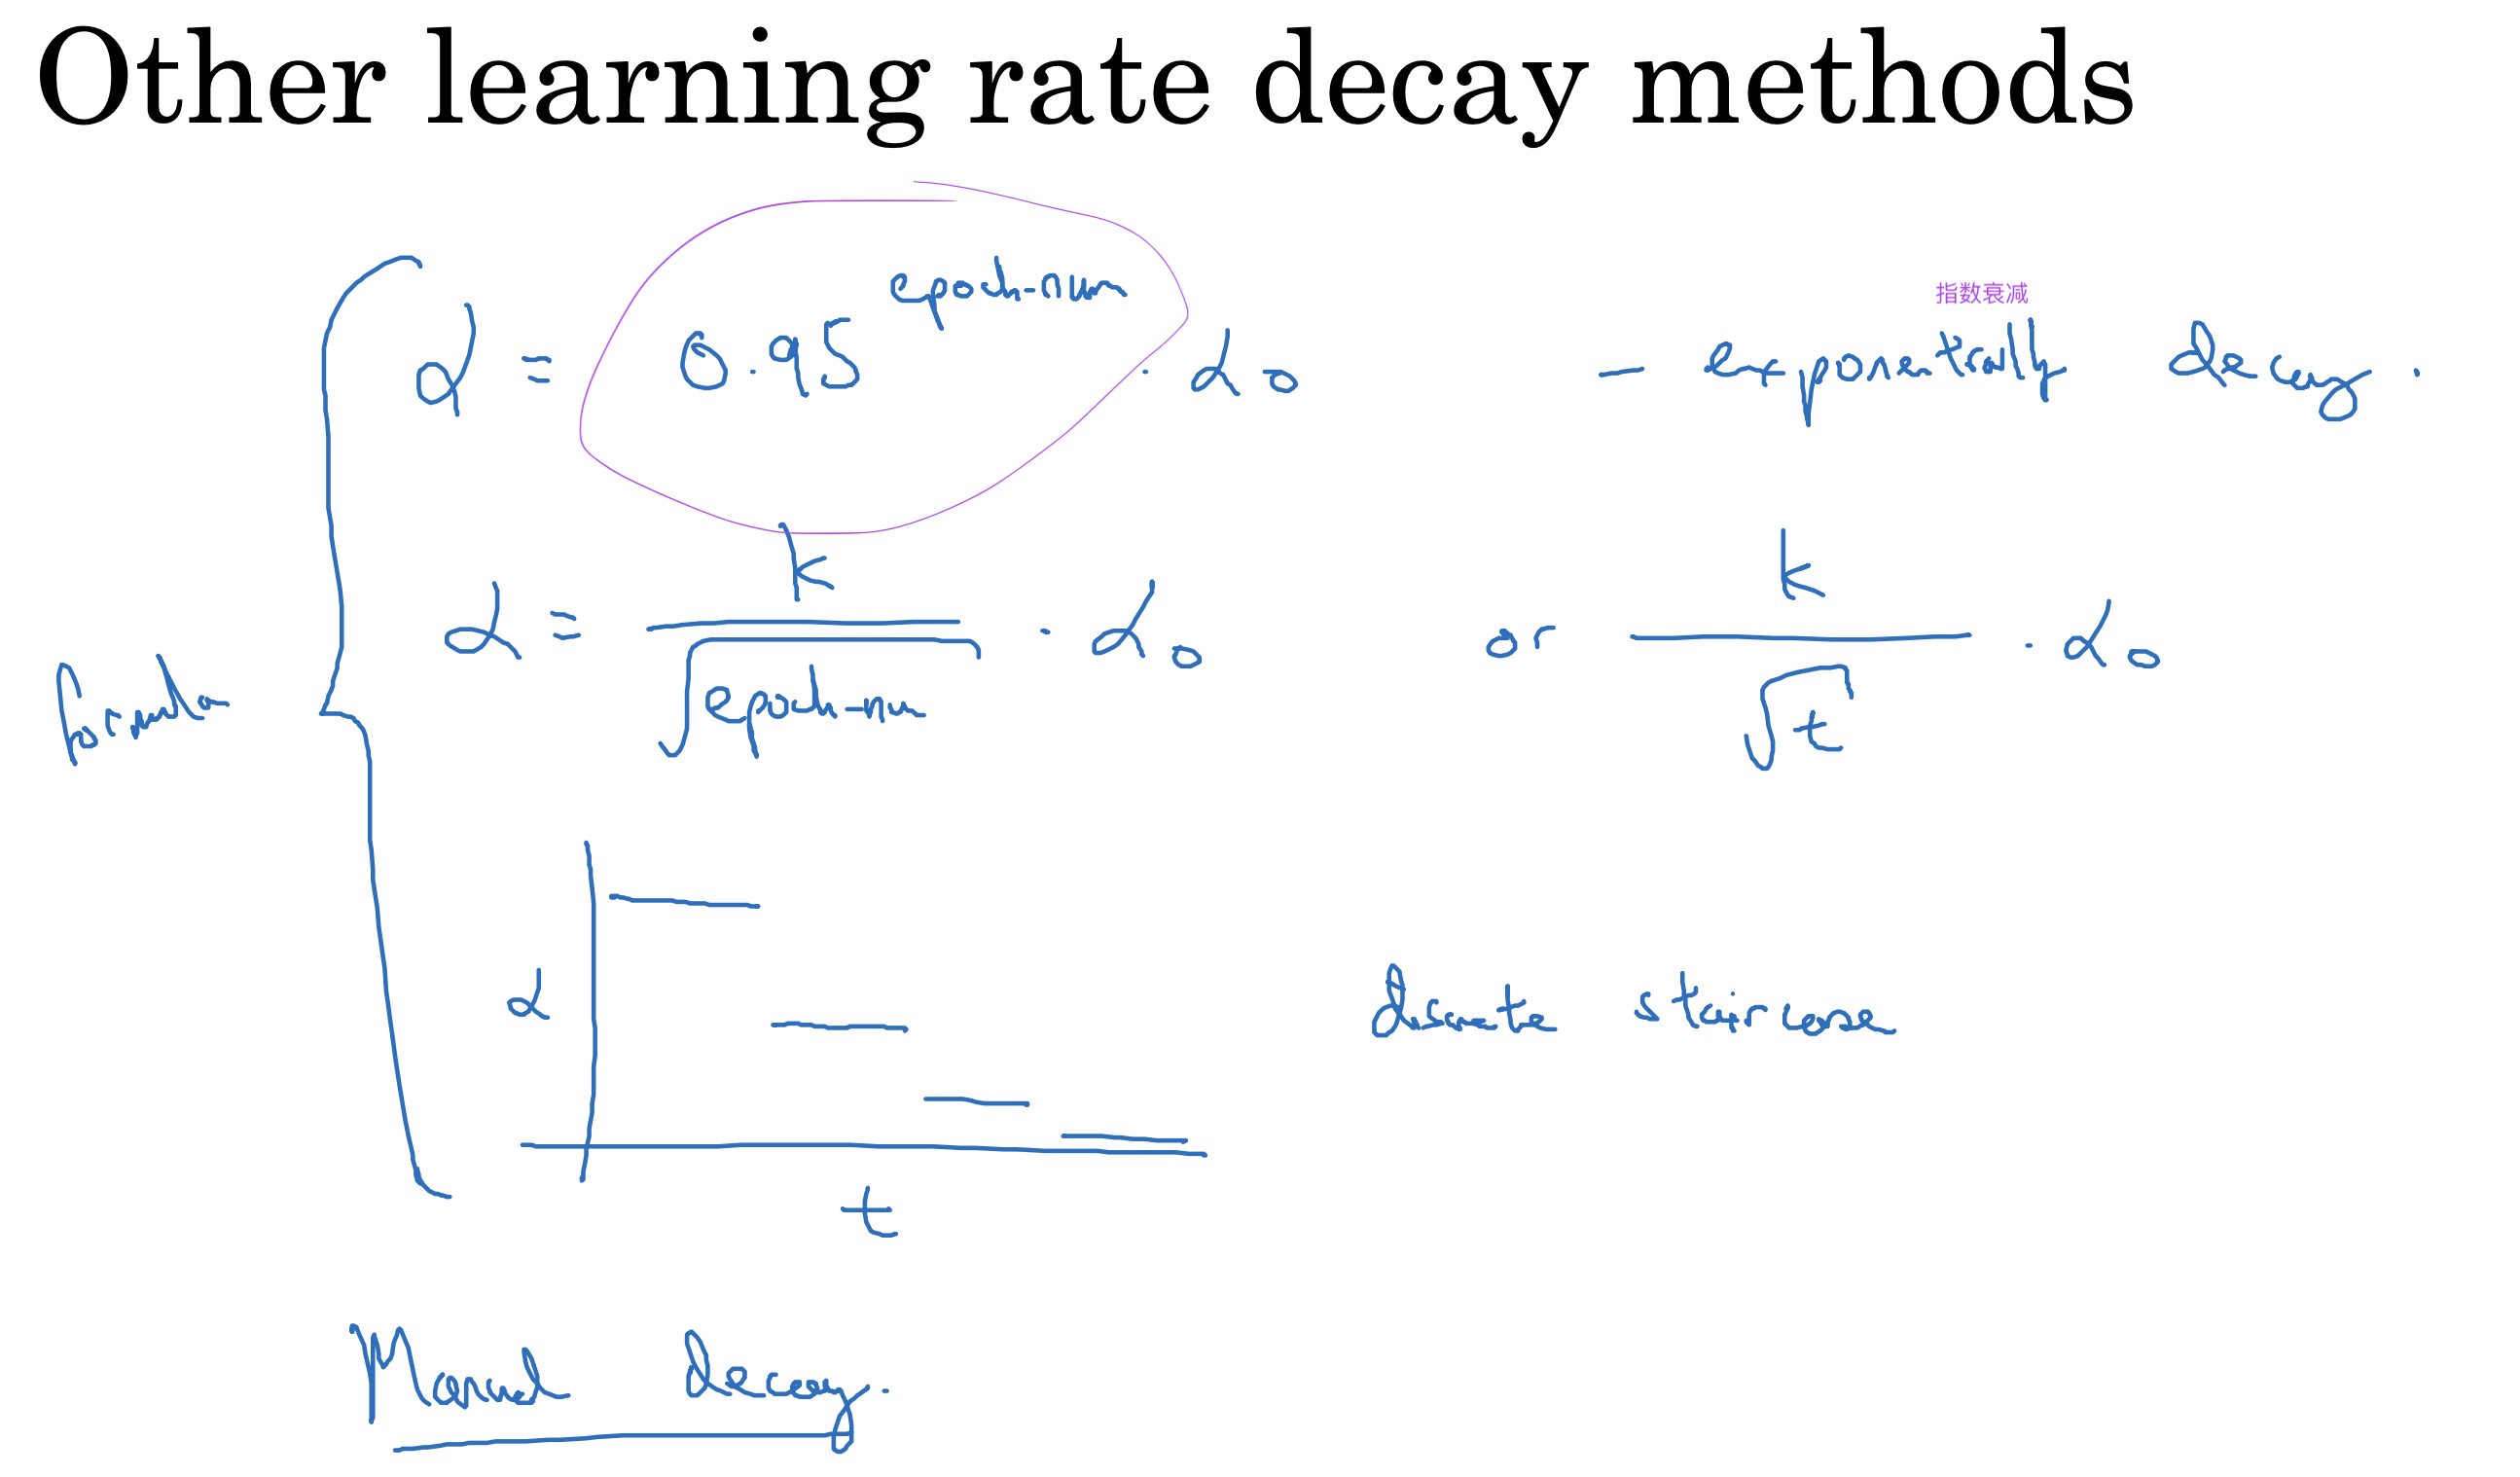 Other learning rate decay methods
α = 0.95^epoch-num · α₀ — exponentially decay.
指数衰减
formula
α = k / √epoch-num · α₀ or k / √t · α₀
α
t
discrete staircase
Manual decay.